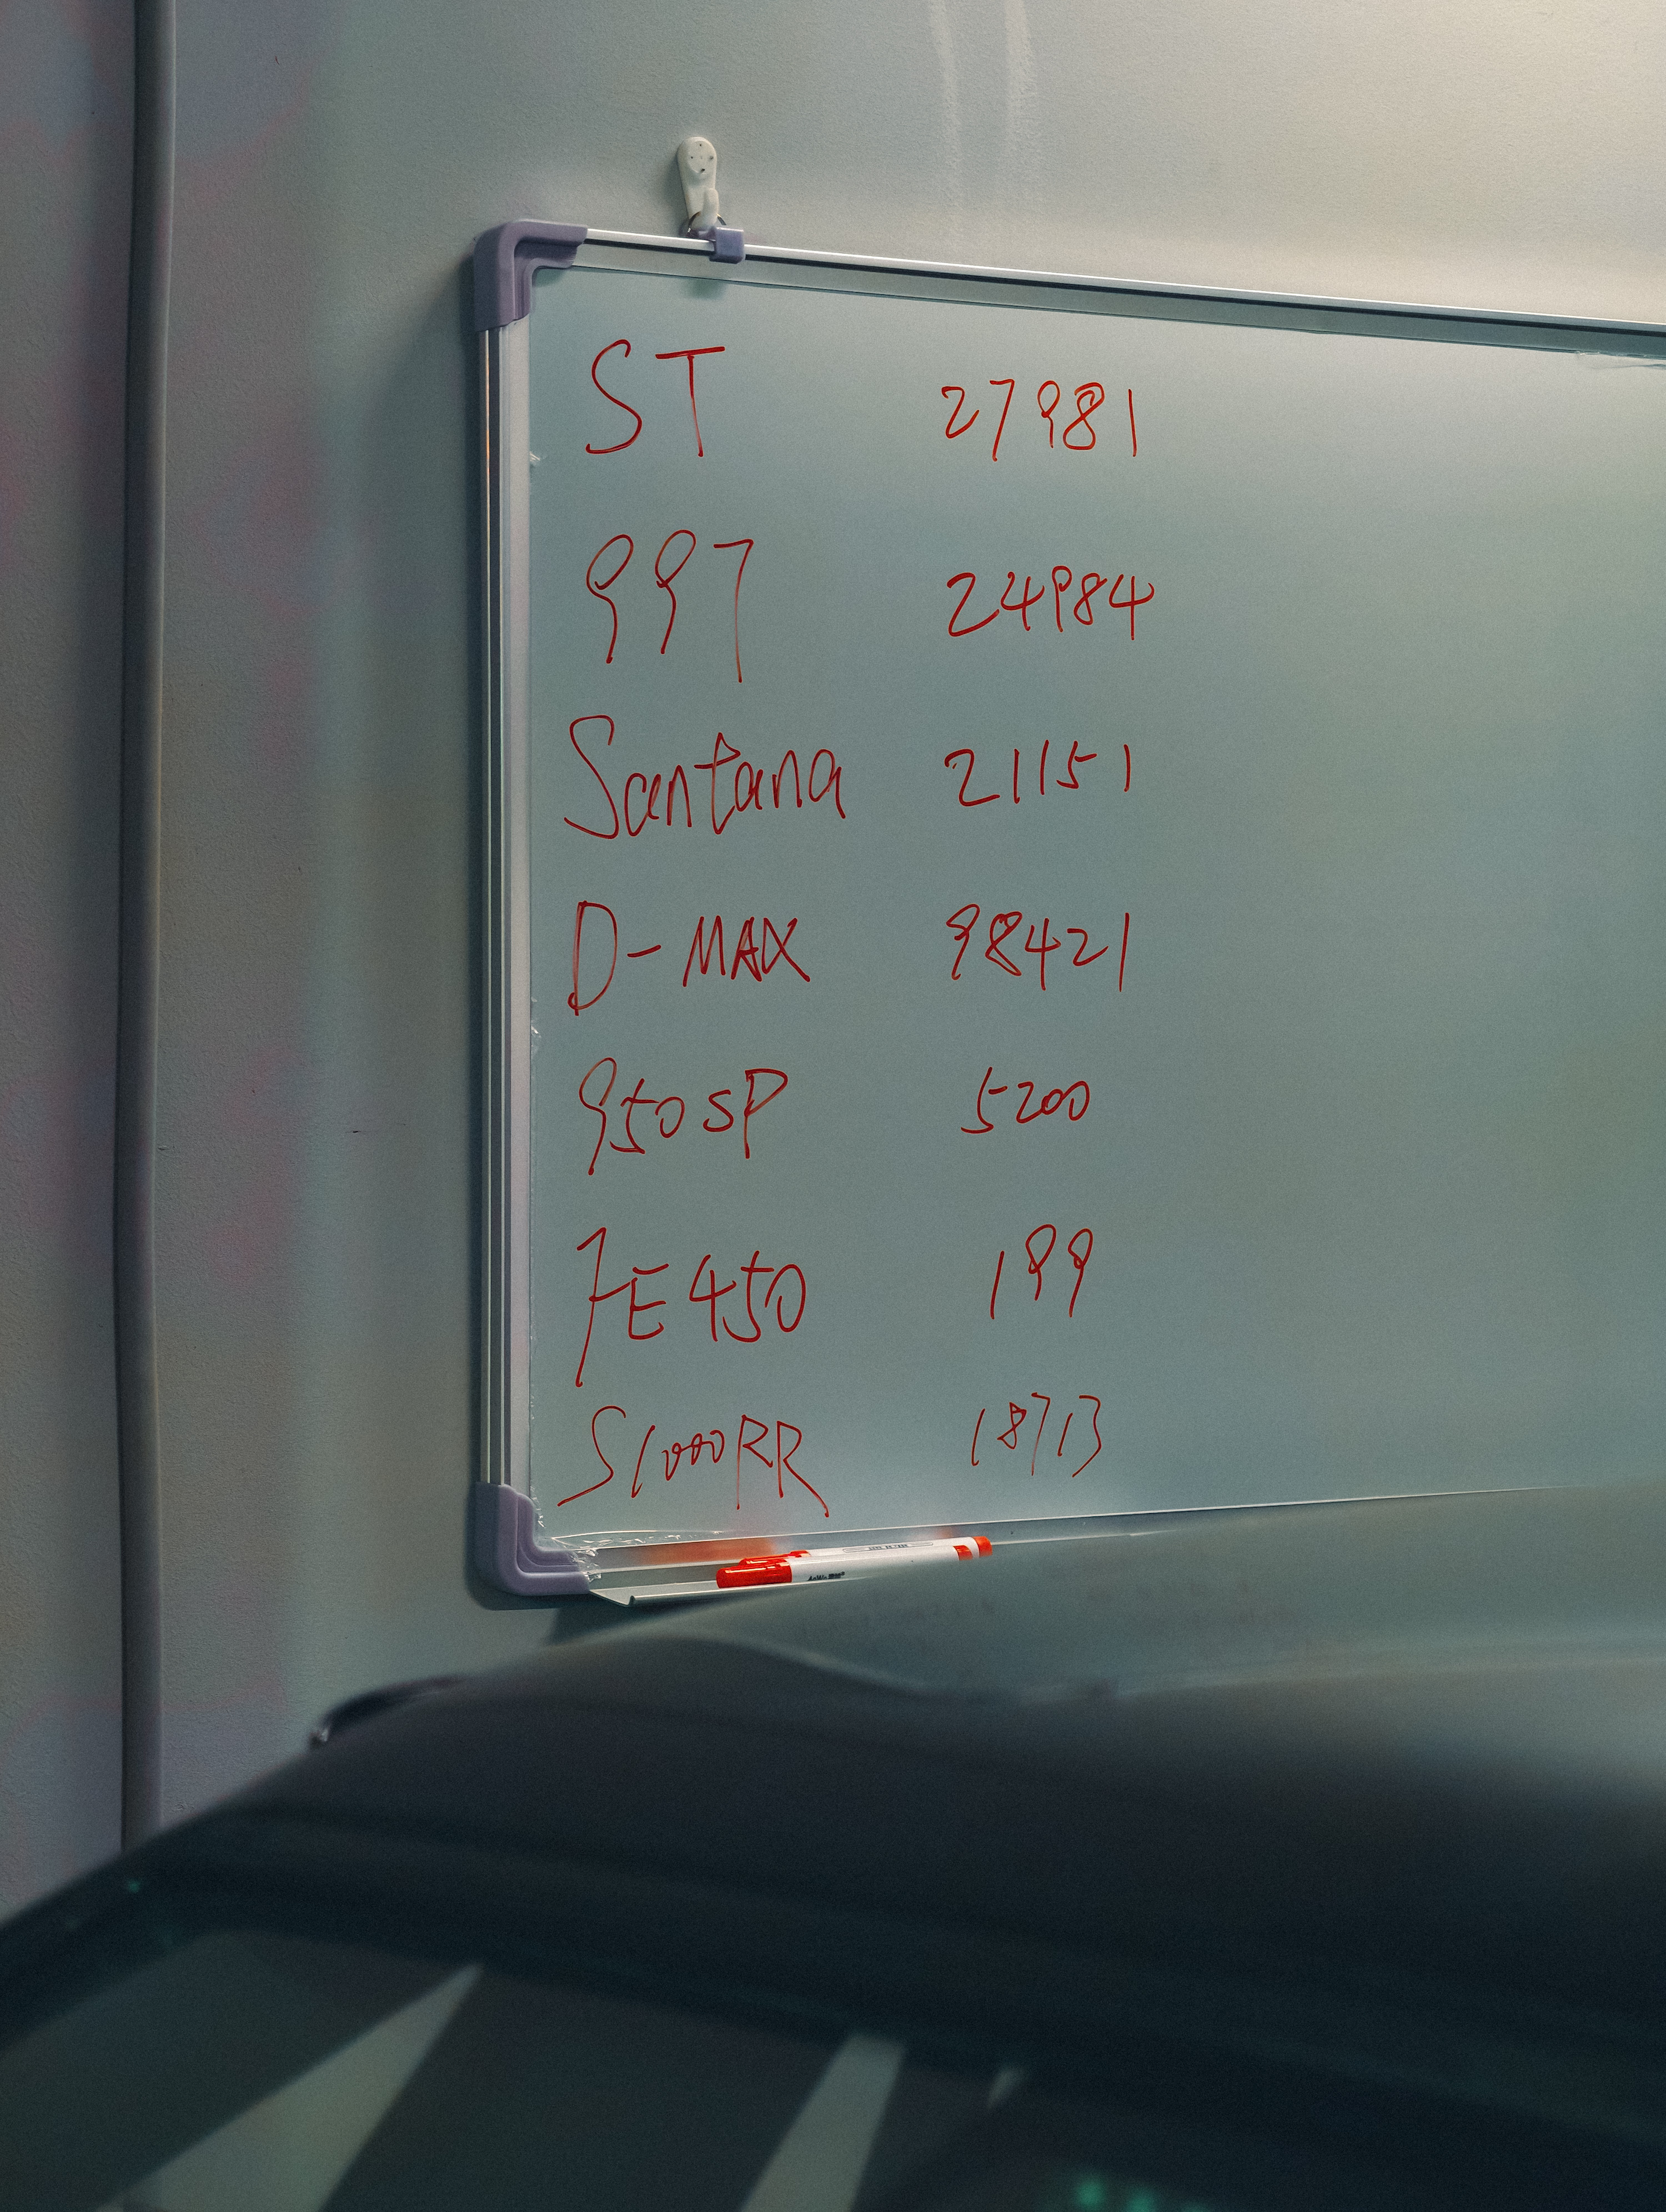 ST 27981
997 24984
Santana 21151
D-MAX 98421
950SP 5200
FE450 199
S1000RR 18713